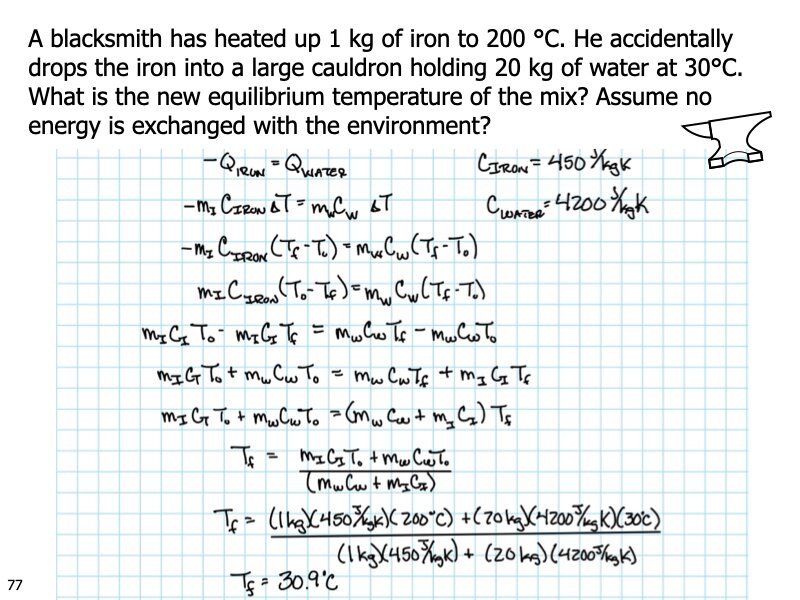 A blacksmith has heated up 1 kg of iron to 200 °C. He accidentally
drops the iron into a large cauldron holding 20 kg of water at 30°C.
What is the new equilibrium temperature of the mix? Assume no
energy is exchanged with the environment?
-Q_IRON = Q_WATER C_IRON = 450 J/kgK
-m_I C_IRON ΔT = m_w C_w ΔT C_WATER = 4200 J/kgK
-m_I C_IRON (T_f - T_o) = m_w C_w (T_f - T_o)
m_I C_IRON (T_o - T_f) = m_w C_w (T_f - T_o)
m_I C_I T_o - m_I C_I T_f = m_w C_w T_f - m_w C_w T_o
m_I C_I T_o + m_w C_w T_o = m_w C_w T_f + m_I C_I T_f
m_I C_I T_o + m_w C_w T_o = (m_w C_w + m_I C_I) T_f
T_f = m_I C_I T_o + m_w C_w T_o
(m_w C_w + m_I C_I)
T_f = (1kg)(450 J/kgK)(200°C) + (20kg)(4200 J/kgK)(30°C)
(1kg)(450 J/kgK) + (20kg)(4200 J/kgK)
T_f = 30.9°C
77